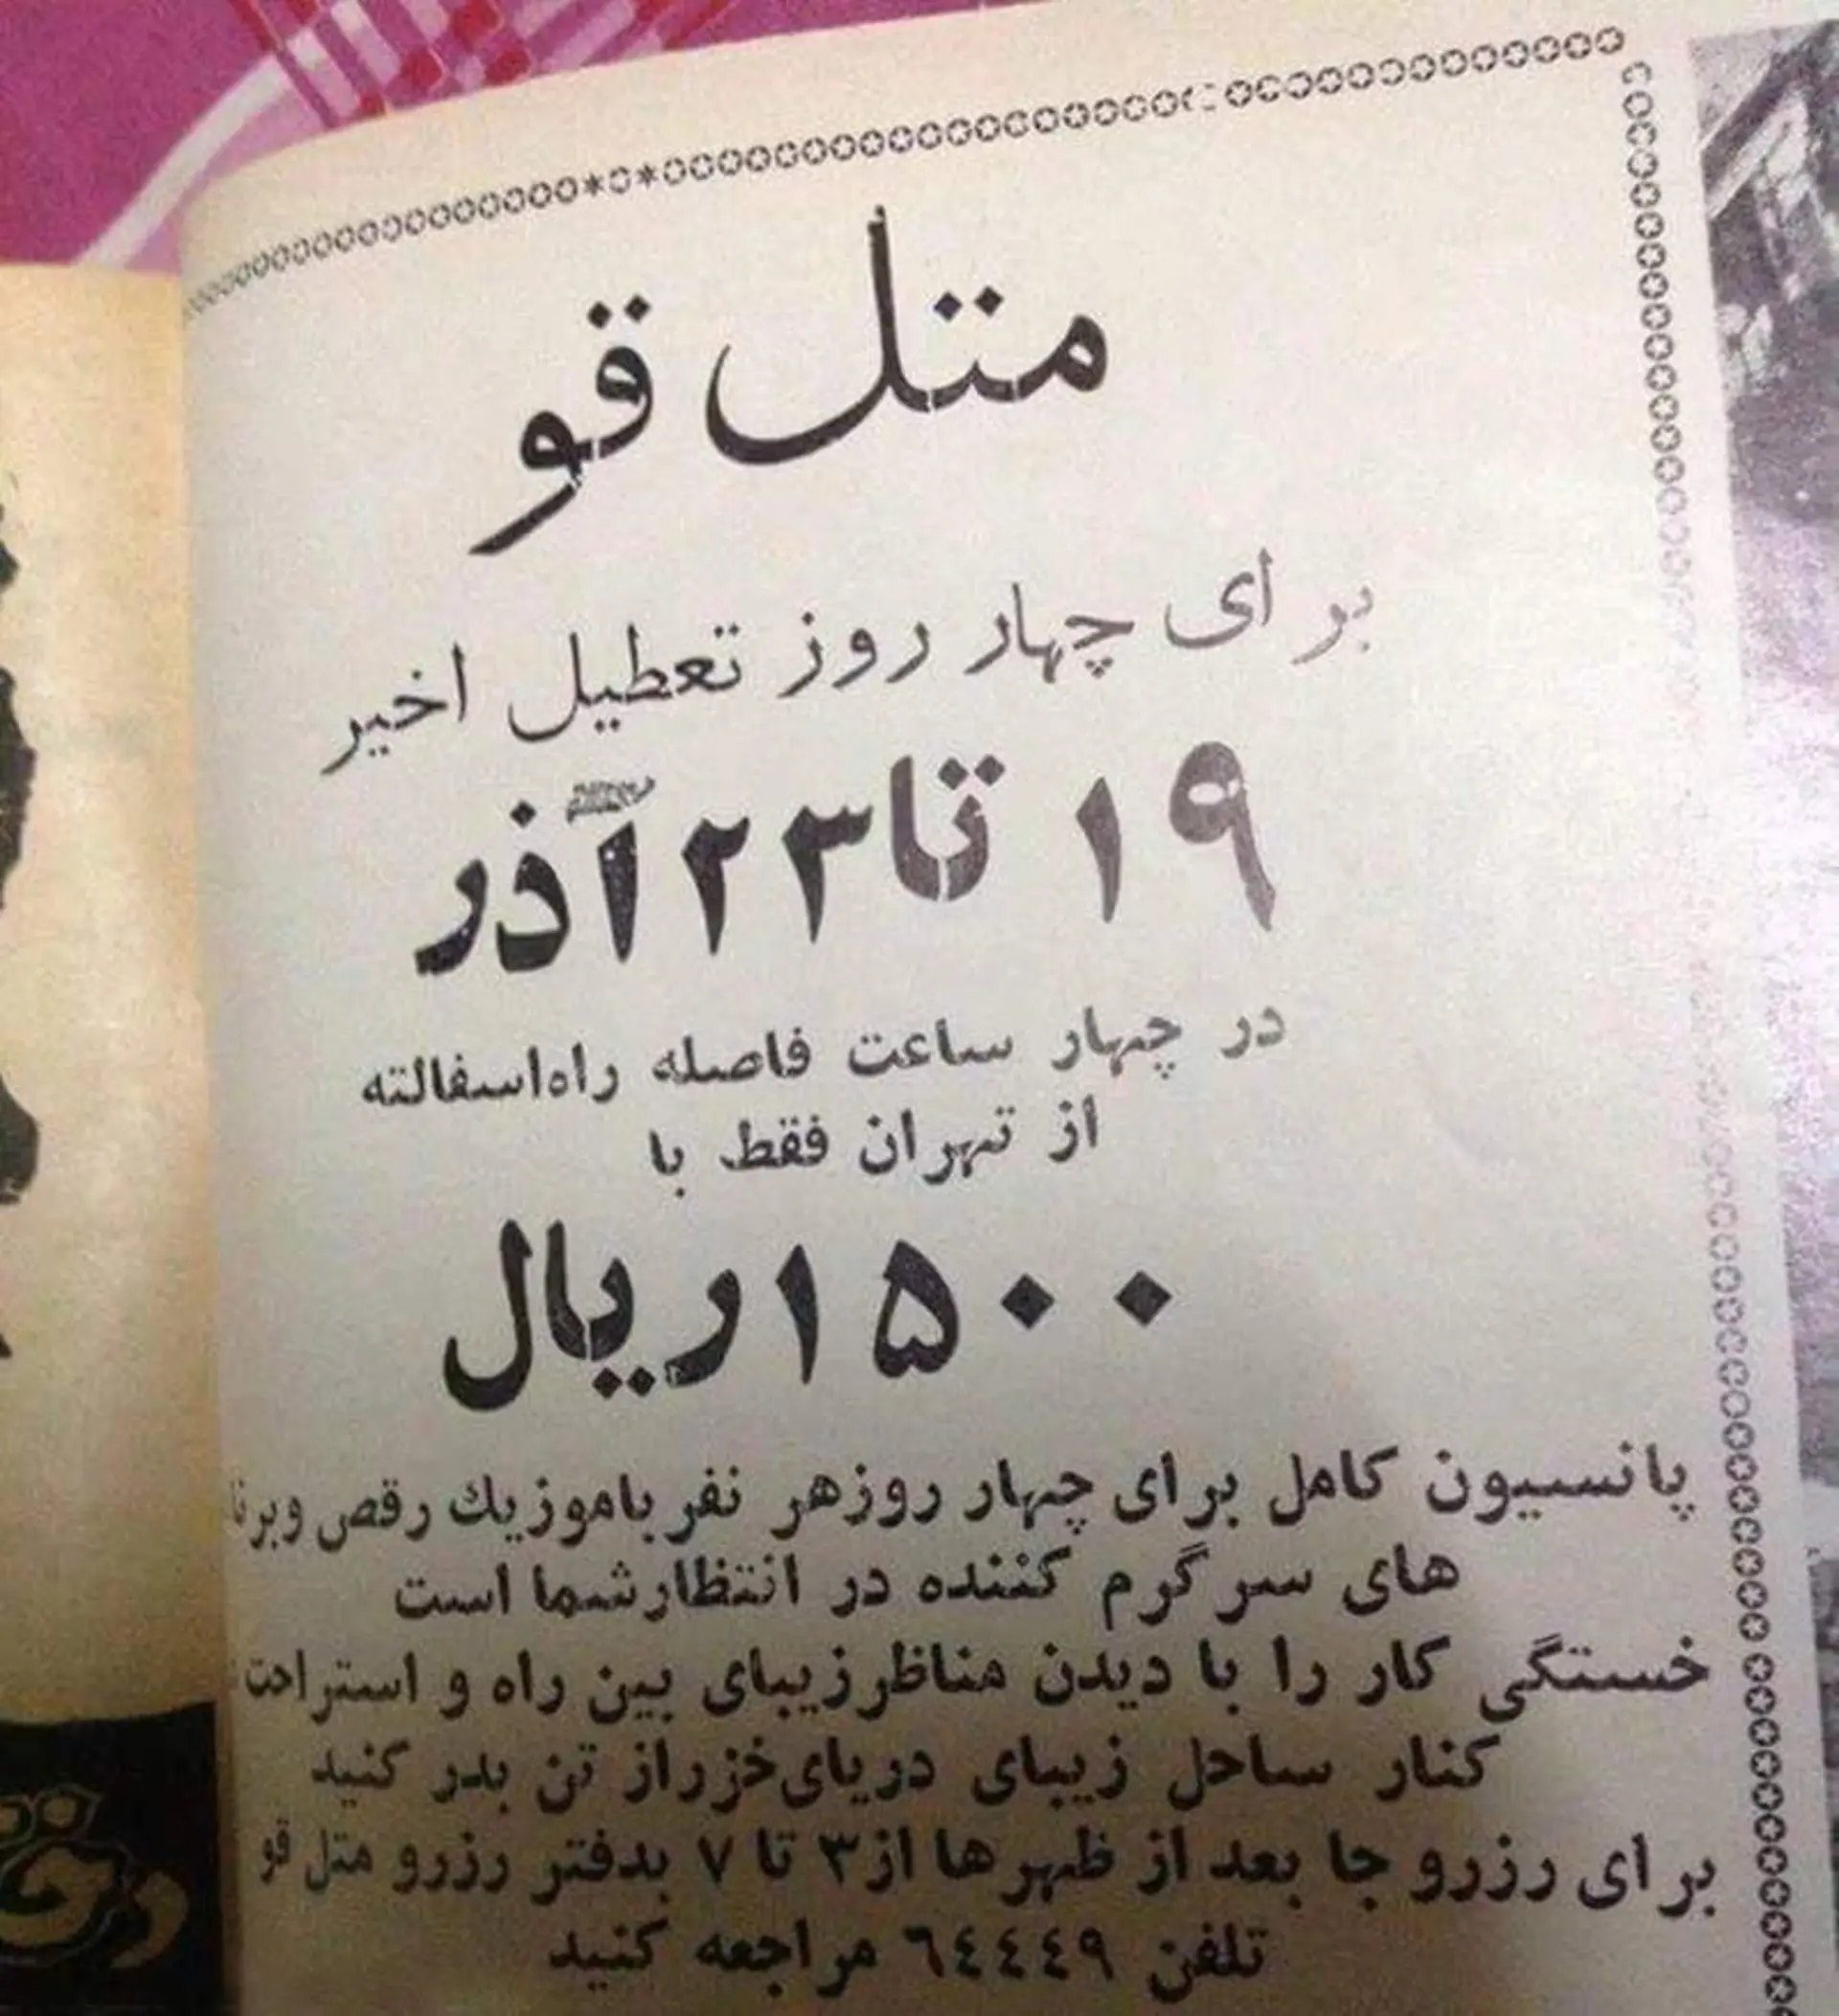 متل قو
برای چهار روز تعطیل اخیر
۱۹ تا ۲۳ آذر
در چهار ساعت فاصله راه اسفالته
از تهران فقط با
۱۵۰۰ ریال
پانسیون کامل برای چهار روز هر نفر با موزیک رقص و برنا
های سرگرم کننده در انتظار شما است
خستگی کار را با دیدن مناظر زیبای بین راه و استراحت
کنار ساحل زیبای دریای خزر از تن بدر کنید
برای رزرو جا بعد از ظهر ها از ۳ تا ۷ بدفتر رزرو متل قو
تلفن ۶۴۴۴۹ مراجعه کنید